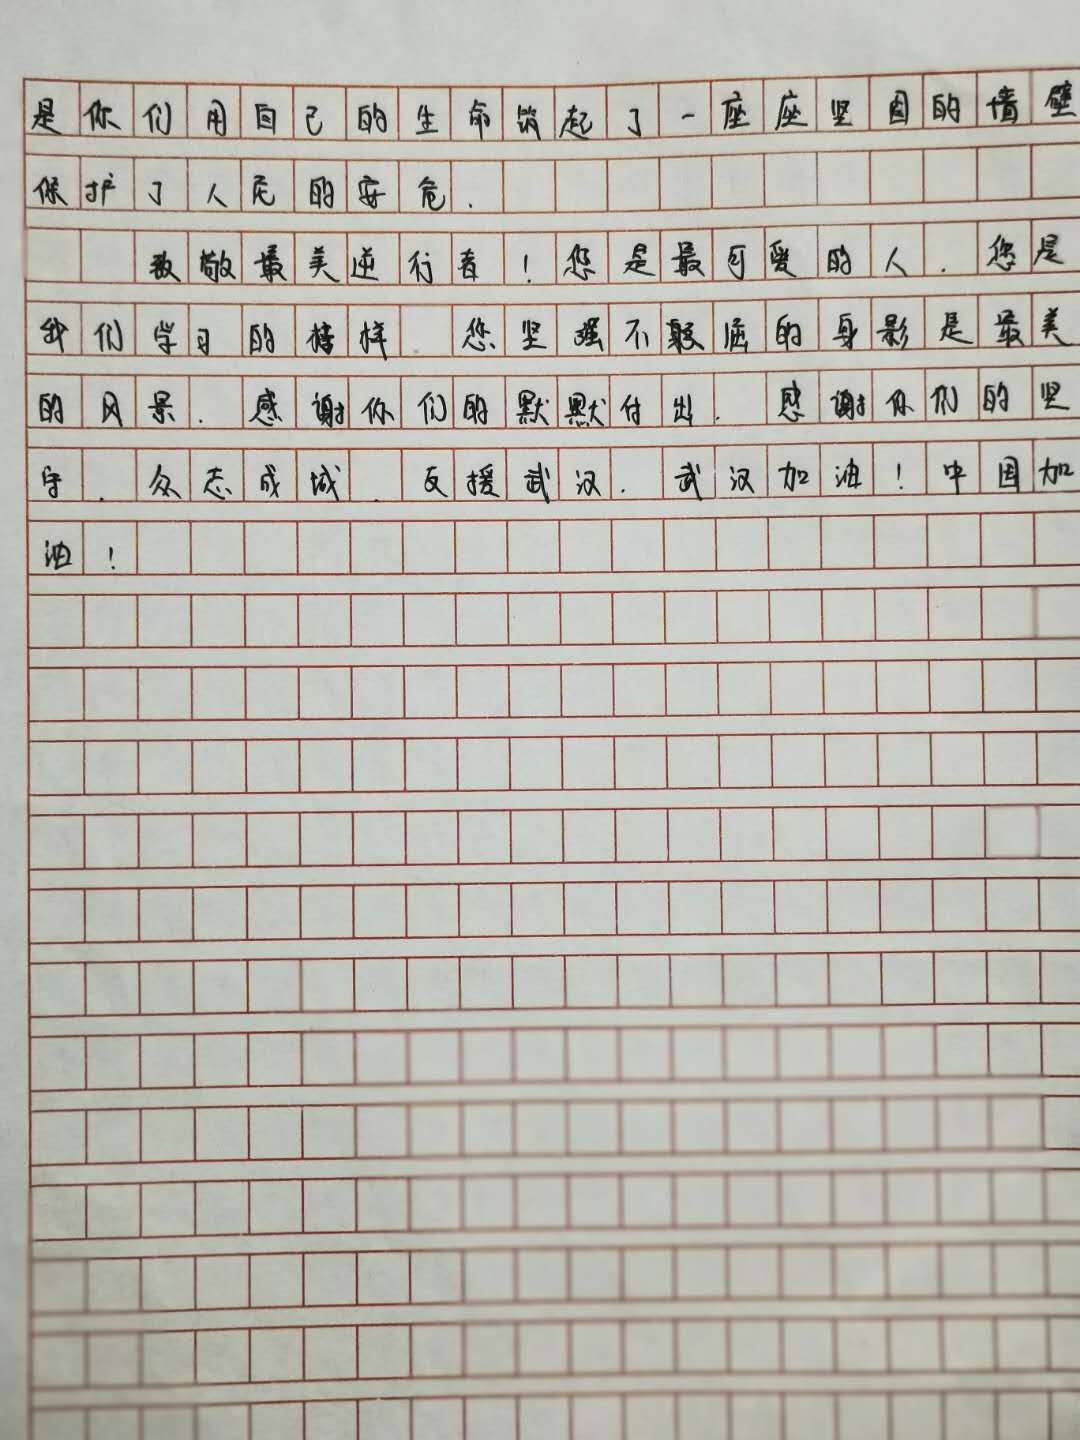 是你们用自己的生命筑起了一座座坚固的墙壁
保护了人民的安危.
致敬最美逆行者!您是最可爱的人.您是
我们学习的榜样.您坚强不躲屈的身影是最美
的风景.感谢你们的默默付出.感谢你们的坚
守.众志成城.支援武汉.武汉加油!中国加
油!